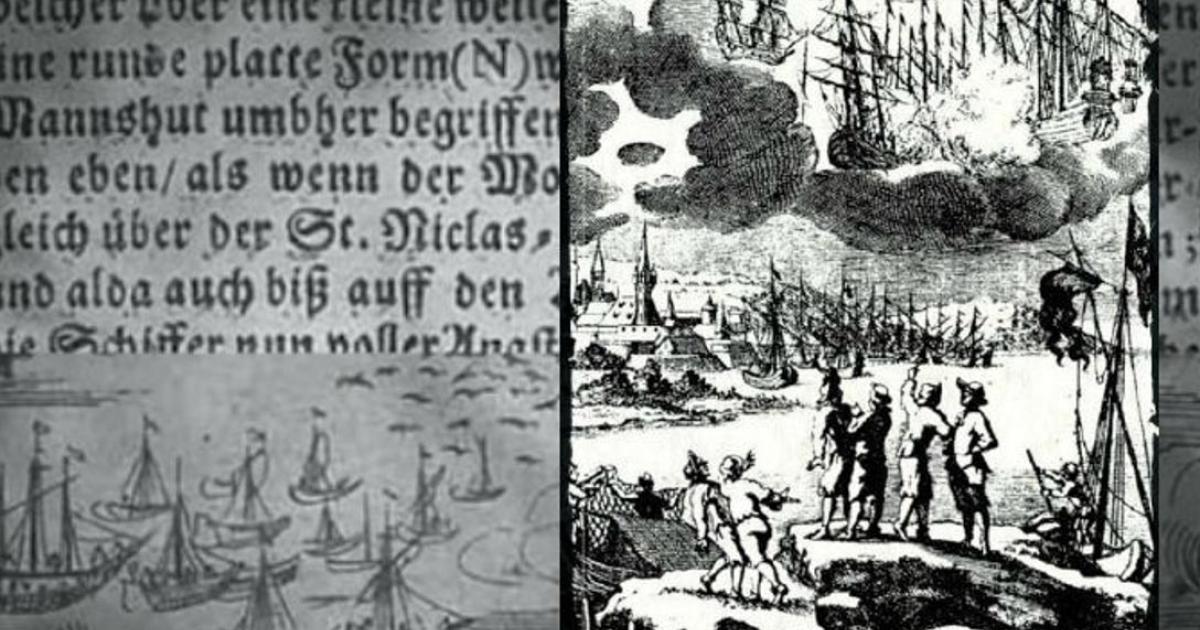 elcher vber eine kleine weile
ine runde platte Form(N)w
Mannshut umbher begriffen
en eben/ als wenn der Mo
leich über der St. Niclas-
nd alda auch biß auff den
ie Schiffer nun voller Angst